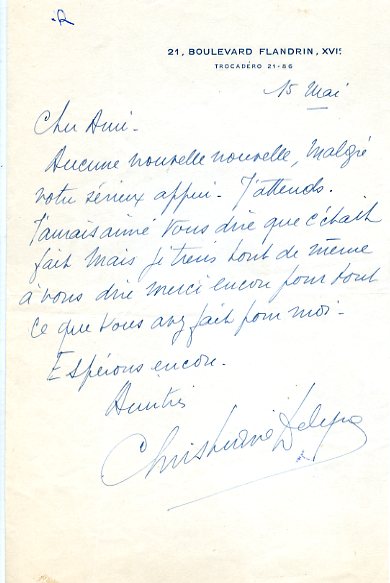 R
21, BOULEVARD FLANDRIN, XVIe
TROCADÉRO 21-86
15 Mai
Cher Ami -
Aucune nouvelle nouvelle, malgré
votre sérieux appui. J'attends.
J'aurais aimé vous dire que c'était
fait mais je tiens tout de même
à vous dire merci encore pour tout
ce que vous avez fait pour moi -
Espérons encore.
Amitiés
Christiane